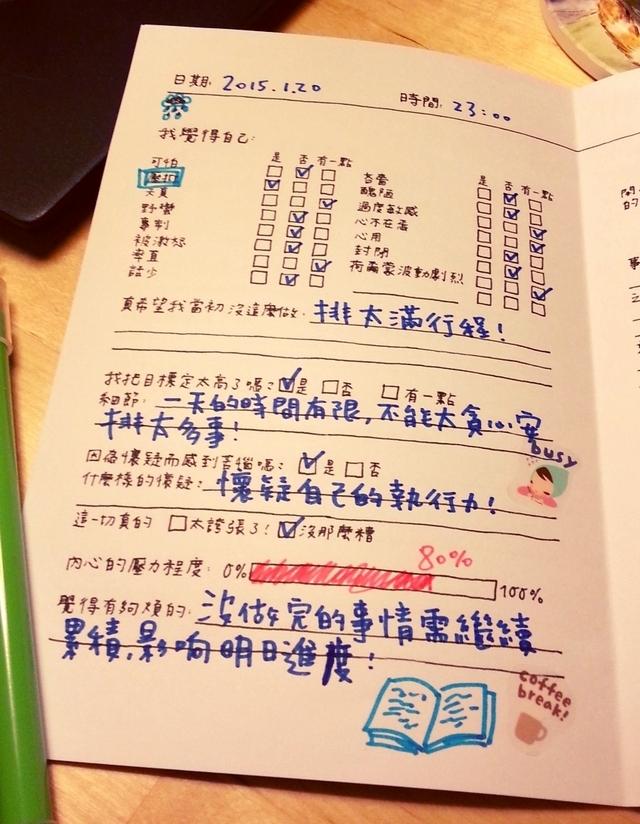 日期: 2015.1.20 時間: 23:00
我覺得自己:
是 否 有一點 是 否
可怕 吝嗇
壓抑 醜陋
天真 過度敏感
野蠻 心不在焉
專制 心用
被激怒 封閉
率直 荷爾蒙波動劇烈
話少
真希望我當初沒這麼做: 排太滿行程!
我把目標定太高了嗎? 是 否 有一點
細節: 一天的時間有限,不能太貪心安
排太多事!
busy
因為懷疑而感到苦惱嗎? 是 否
什麼樣的懷疑: 懷疑自己的執行力!
這一切真的 太誇張了! 沒那麼糟
80%
內心的壓力程度: 0% 100%
覺得有夠煩的: 沒做完的事情需繼續
累積,影響明日進度!
coffee
break!